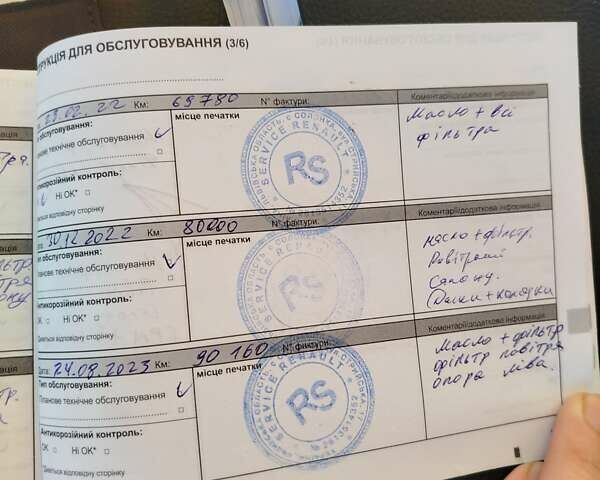 СТРУКЦІЯ ДЛЯ ОБСЛУГОВУВАННЯ (3/6)
22 Км: 69780 N° фактури:
Коментарі/додаткова інформація
обслуговування:
Планове технічне обслуговування
місце печатки
SERVICE RENAULT
RS
Масло + всі
фільтра
Антикорозійний контроль:
Ні OK*
Дивіться відповідну сторінку
Дата: 30.12.2022 Км: 80000 N° фактури:
Коментарі/додаткова інформація
Тип обслуговування:
Планове технічне обслуговування
місце печатки
SERVICE RENAULT
RS
масло + фільтр.
Повітряний
Салону.
Диски + колодки
Антикорозійний контроль:
OK Ні OK*
Дивіться відповідну сторінку
Дата: 24.09.2023 Км: 90 160 N° фактури:
Коментарі/додаткова інформація
Тип обслуговування:
Планове технічне обслуговування
місце печатки
SERVICE RENAULT
RS
Масло + фільтр
фільтр повітря
опора ліва.
Антикорозійний контроль:
OK Ні OK*
*Дивіться відповідну сторінку